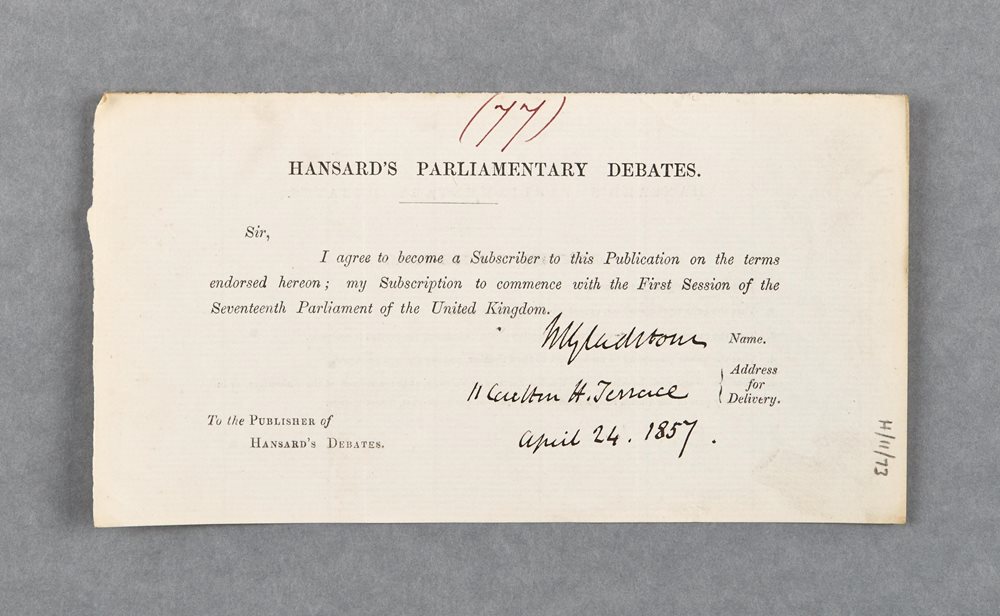 (77)
HANSARD'S PARLIAMENTARY DEBATES.
Sir,
I agree to become a Subscriber to this Publication on the terms
endorsed hereon; my Subscription to commence with the First Session of the
Seventeenth Parliament of the United Kingdom.
WEGladstone Name.
11 Carlton H. Terrace Address for Delivery.
April 24. 1857.
To the PUBLISHER of
HANSARD'S DEBATES.
H/11/73